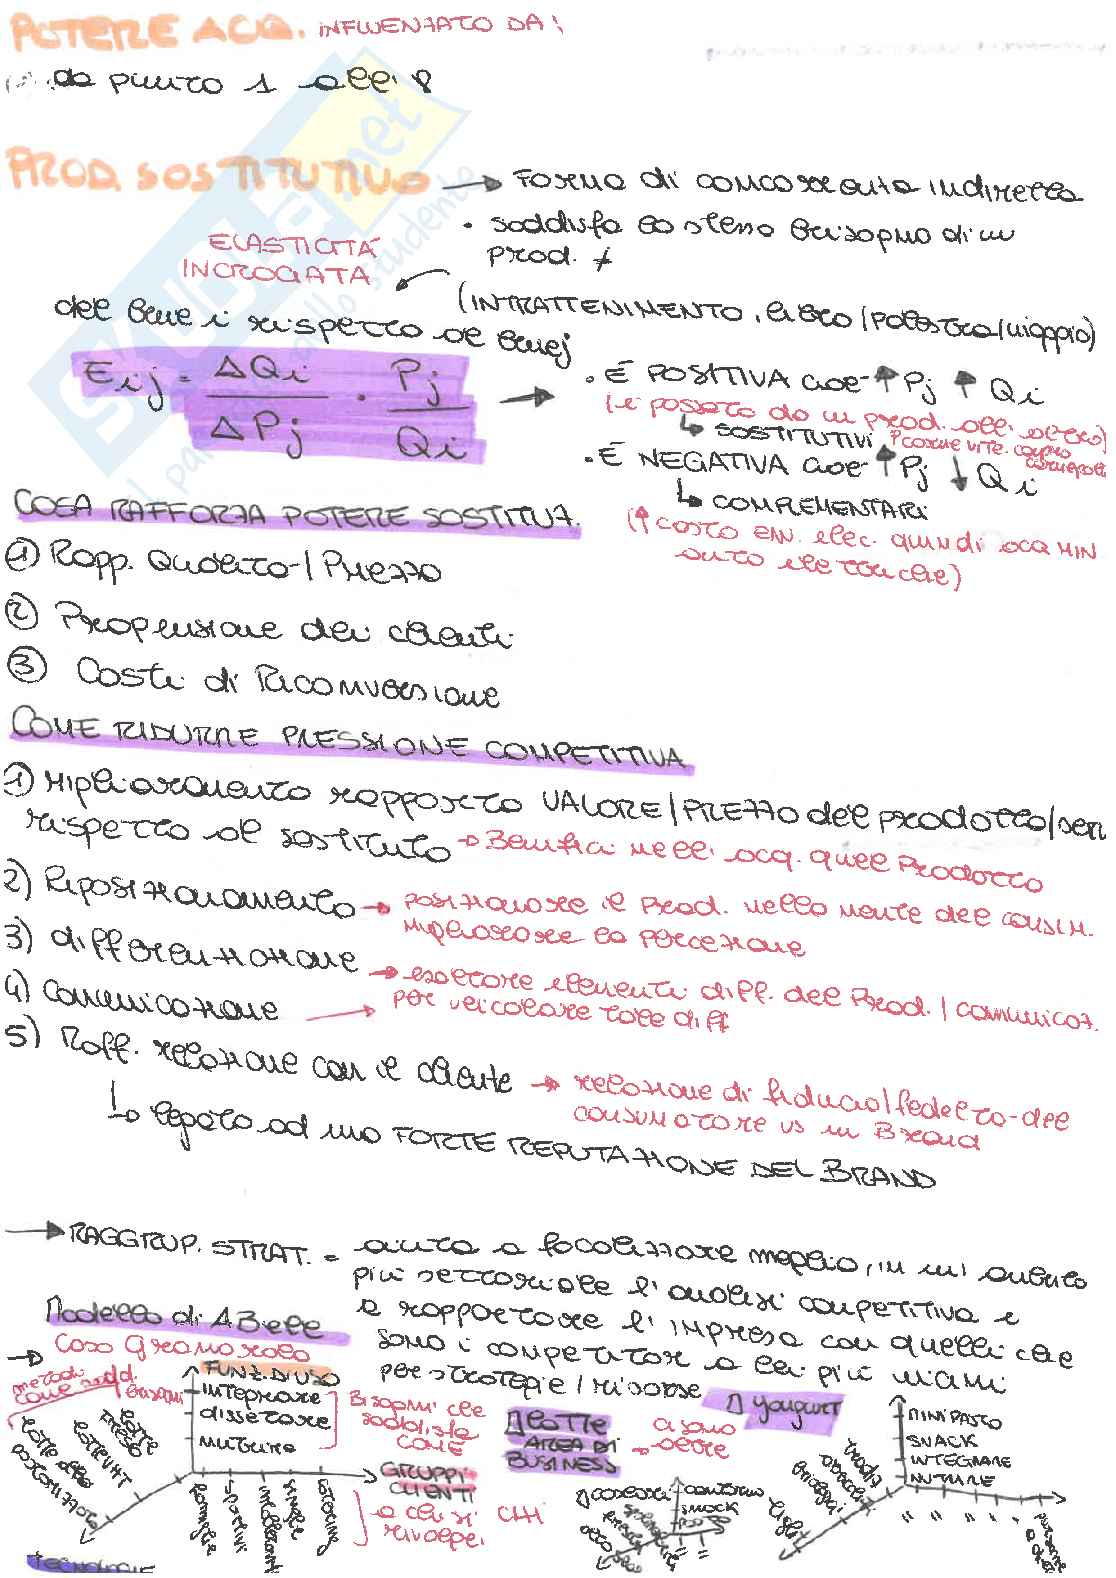 POTERE ACQ. INFLUENZATO DA:
da punto 1 all' 8
PROD. SOSTITUTIVO → Forma di concorrenza indiretta
• soddisfa lo stesso bisogno di un
prod. ≠
ELASTICITÀ
INCROCIATA
(INTRATTENIMENTO, libro/palestra/viaggio)
del bene i rispetto al bene j
Eij = ΔQi / ΔPj · Pj / Qi →
• È POSITIVA cioè ↑ Pj ↑ Qi
(si passa da un prod. all'altro)
↳ SOSTITUTIVI
• È NEGATIVA cioè ↑ Pj ↓ Qi
↳ COMPLEMENTARI
(↑ costo en. elec. quindi acq MIN
auto elettriche)
COSA RAFFORZA POTERE SOSTITUT.
① Rapp. Qualità/Prezzo
② Propensione dei clienti
③ Costi di Riconversione
COME RIDURRE PRESSIONE COMPETITIVA
① Miglioramento rapporto VALORE/PREZZO del prodotto/serv
rispetto al sostituto → Benefici nell' acq. quel Prodotto
2) Riposizionamento → Posizionare il Prod. nella mente del consum.
migliorare la percezione
3) differenziazione → esaltare elementi diff. del Prod. / comunicaz.
4) comunicazione → per veicolare tale diff
5) Raff. relazione con il cliente → relazione di fiducia/fedeltà del
consumatore vs un Brand
↳ legato ad una FORTE REPUTAZIONE DEL BRAND
→ RAGGRUP. STRAT. = aiuta a focalizzare meglio, in un' ambito
più settoriale l'analisi competitiva e
a rapportare l'impresa con quelli che
sono i competitor a lei più vicini
per strategie / risorse
Modello di ABell
→ Caso Granarolo
metodi
come sodd.
bisogni
FUNZ. DI USO
integrare
dissetare
nutrire
Bisogni che
soddisfa
COME
GRUPPI
CLIENTI
a chi si CHI
rivolge
famiglie
sportivi
intolleranti
single
catering
latte
fresco
latte UHT
TECNOLOGIE
latte
AREA DI
BUSINESS
→ ci sono
altre
yougurt
MINIPASTO
SNACK
INTEGRARE
NUTRIRE
contorno
SNACK